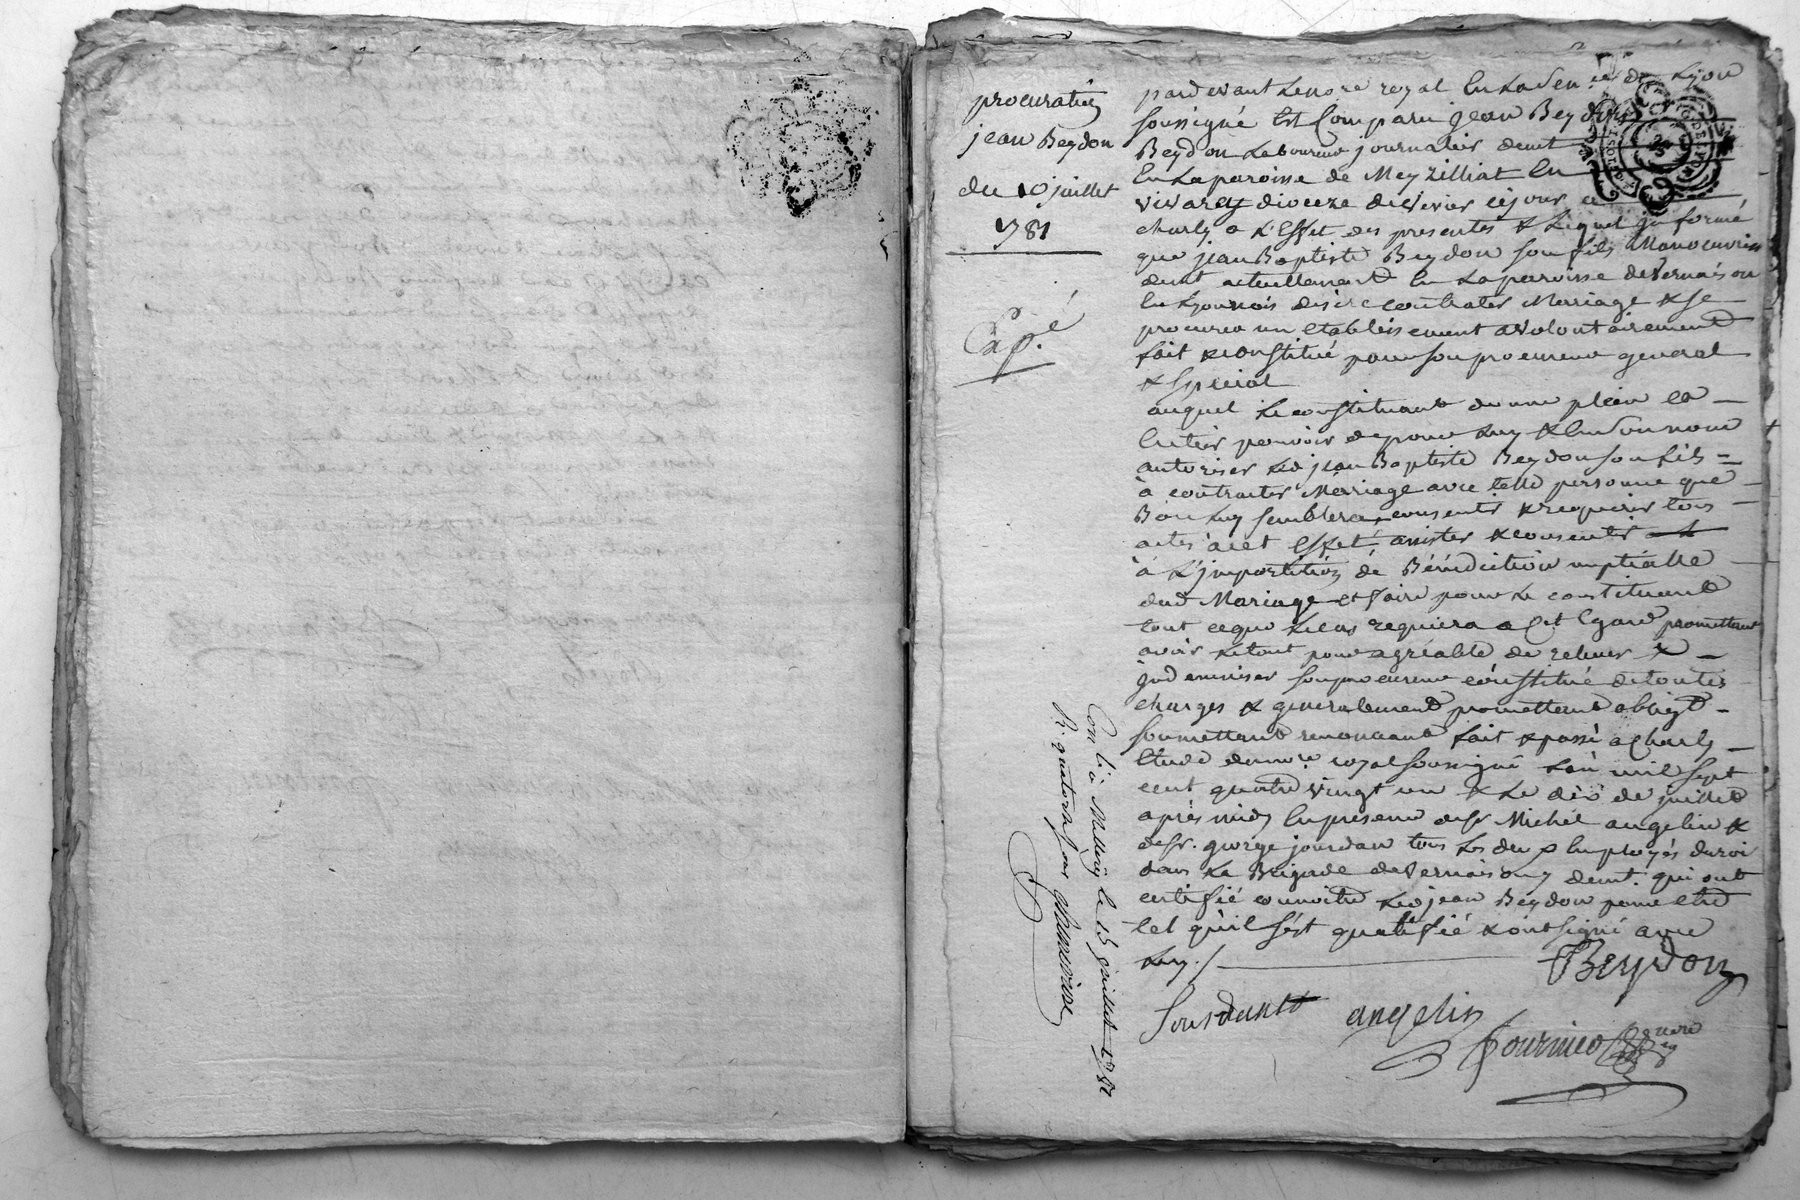 procuration
jean Beydon
du 10 juillet
1781
Exp.é
pardevant le no.re royal en la sen.ée de Lyon
soussigné est comparu jean Beydon
Beydon laboureur journalier demt
en la paroisse de Meyzilliat en
vivarey dioceze de vivier ce jour a
charly a l'effet des presentes & lequel jnformé
que jean Baptiste Beydon son fils Manoeuvrier
demt actuellement en la paroisse de vernaison
en Lyonnois desire contrater Mariage & se
procurer un etablissement a volontairement
fait & constitué pour son procureur general
& special
auquel le constituant donne plein et
entier pouvoir de pour luy & en son nom
autoriser led jean Baptiste Beydon son fils
à contracter Mariage avec telle personne que
Bon luy semblera, consentir & requerir tous
actes à cet effet, assister & consentir
à l'jmpartition de Bénédiction nuptialle
dud Mariage et faire pour le constituant
tout ce que le cas requiera a cet Egard promettant
avoir le tout pour agréable de relever &
jndemniser son procureur constitué de toutes
charges & generalement promettant obligt
soumettant renonçant fait & passé a Charly
Etude du no.re royal soussigné l'an mil sept
cent quatre vingt un & le dix de juillet
après midy En presence de sr. Michel angelin &
de sr. george jourdan tous les deux Employés du roi
dans la Brigade de vernaison y demt. qui ont
certifié connoitre led jean Beydon pour etre
tel qu'il s'est qualifié & ont signé avec
luy./.
Beydon
Jourdant angelin
fournier
Con.lé à Millery le 15 juillet 1781
R. quatorze sous